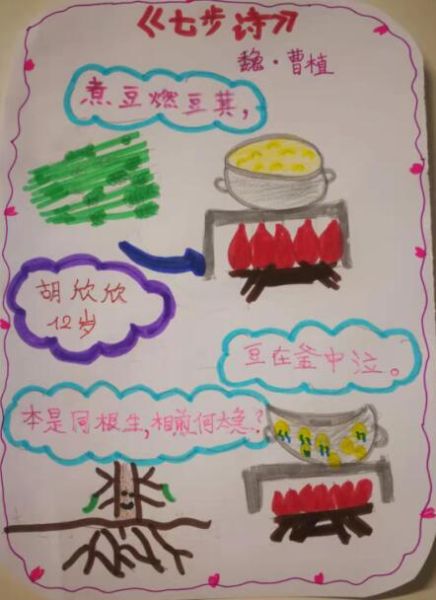 《七步诗》
魏·曹植
煮豆燃豆萁，
胡欣欣
12岁
豆在釜中泣。
本是同根生，相煎何太急？